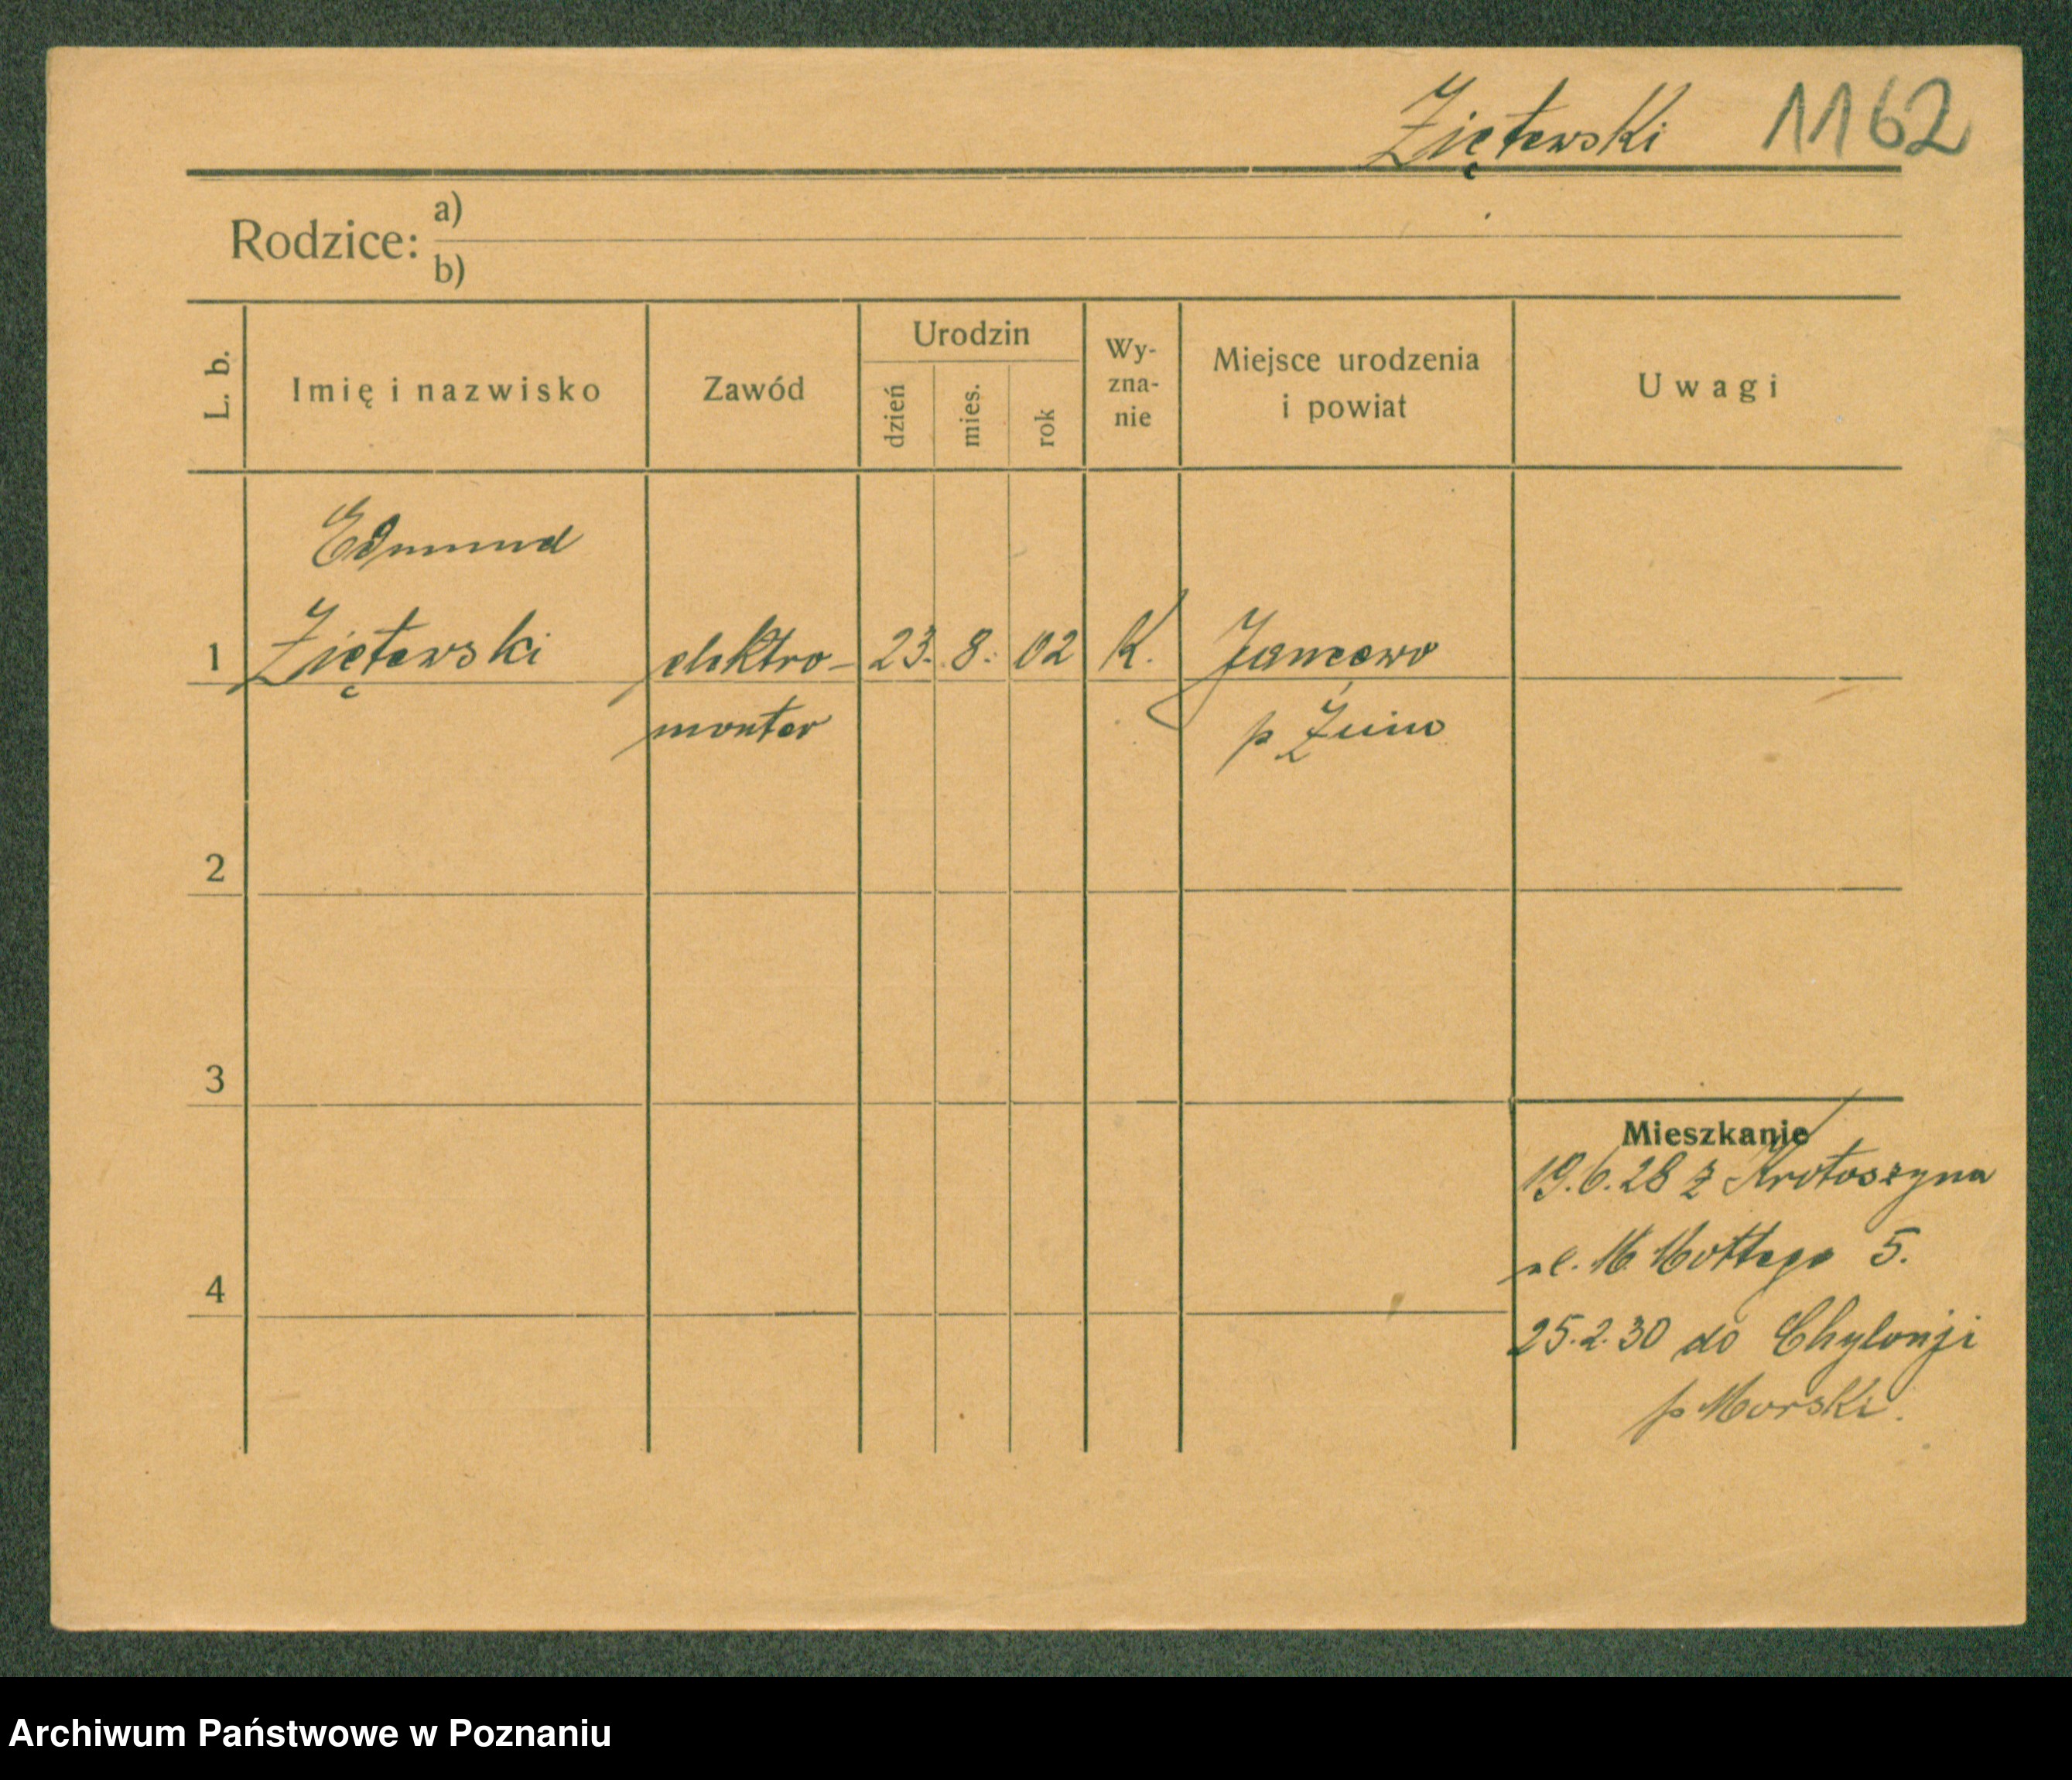 Ziętewski 1162
Rodzice: a)
b)
L. b. Imię i nazwisko Zawód Urodzin dzień mies. rok Wy-zna-nie Miejsce urodzenia i powiat Uwagi
Edmund
1 Ziętewski elektro- 23. 8. 02 K. Janeowo
monter p Żnin
2
3
Mieszkanie
19.6.28 z Krotoszyna
ul. M Mottego 5.
4
25.2.30 do Chylonji
p Morski.
Archiwum Państwowe w Poznaniu